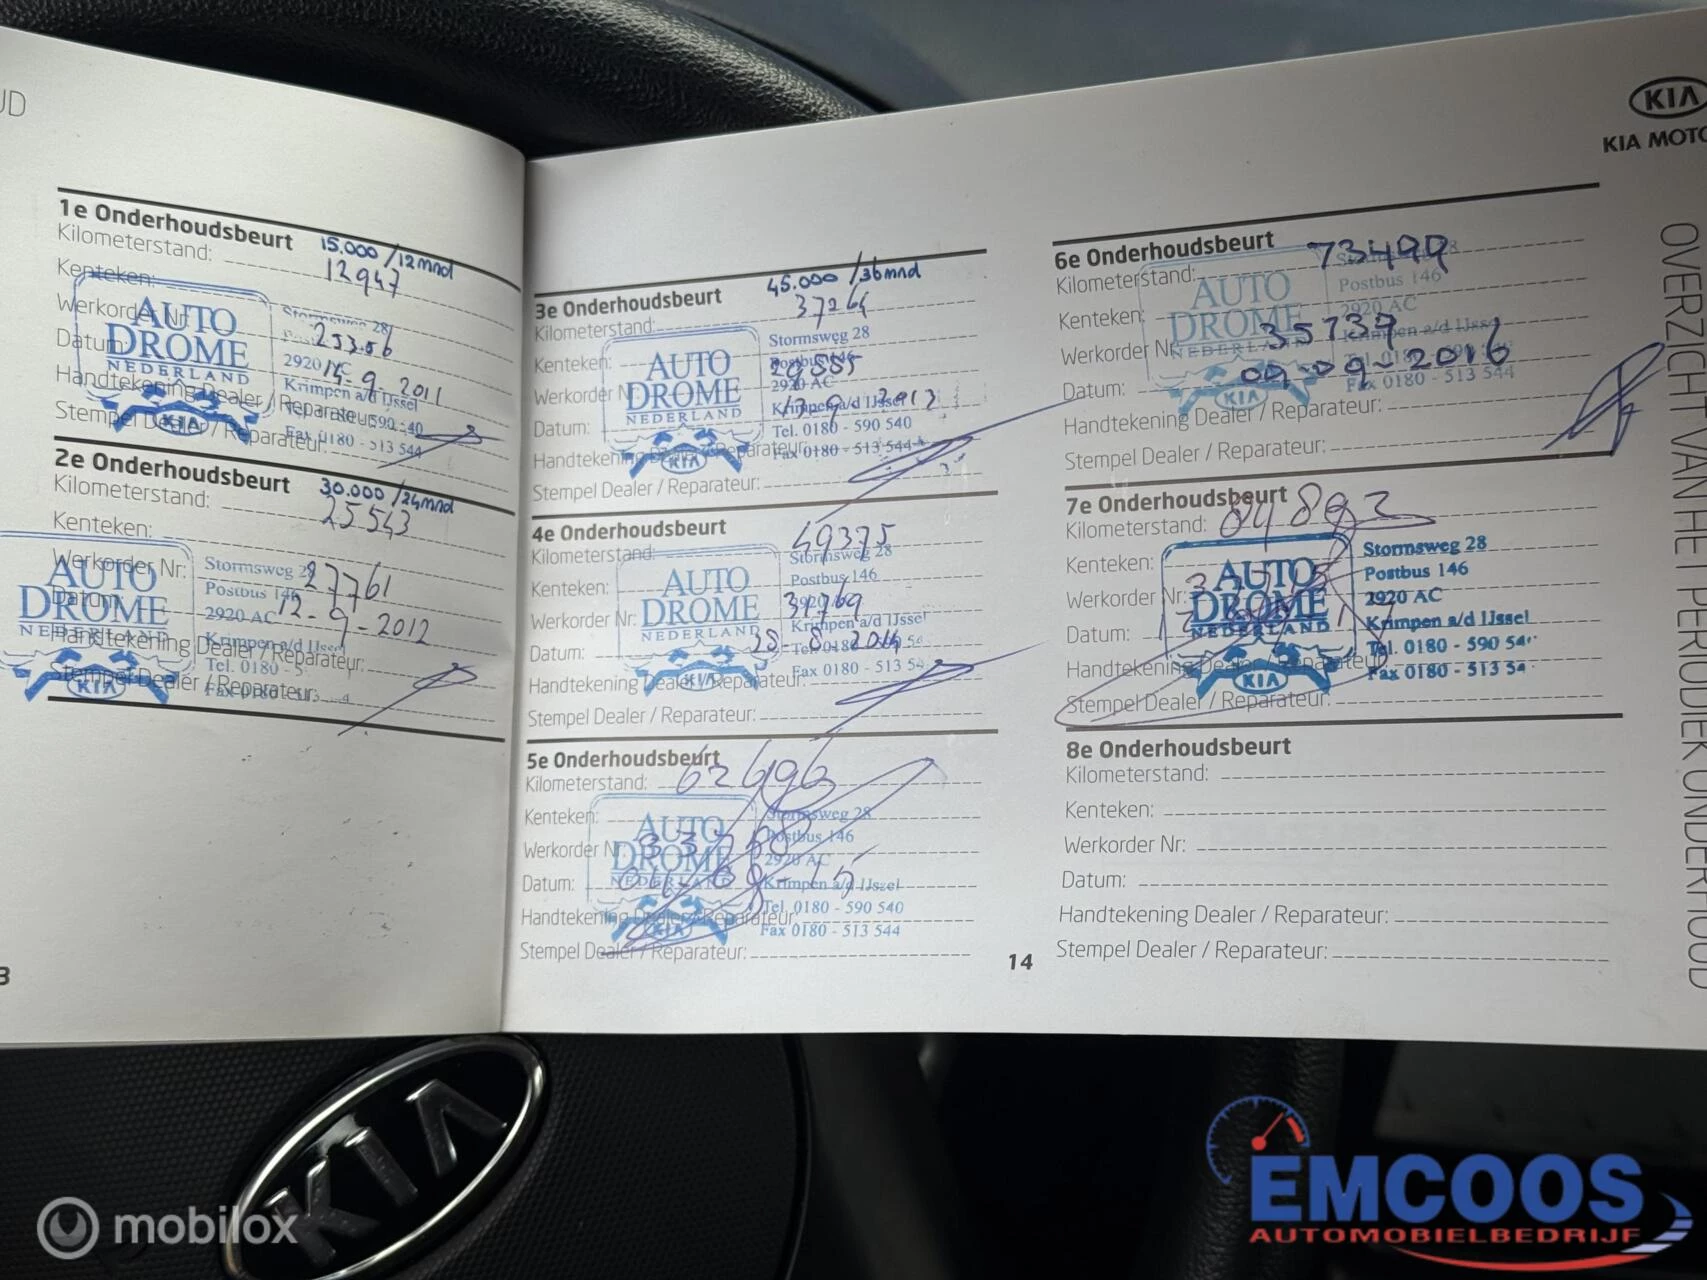 UD
1e Onderhoudsbeurt 15.000 /12mnd
Kilometerstand: 12947
Kenteken:
Werkorder Nr: 25306
Datum: 14-9-2011
Handtekening Dealer / Reparateur:
Stempel Dealer / Reparateur:
AUTO
DROME
NEDERLAND
KIA
Stormsweg 28
2920 AC
Krimpen a/d IJssel
Fax 0180 - 513 544
2e Onderhoudsbeurt 30.000 /24mnd
Kilometerstand: 25543
Kenteken:
Werkorder Nr: 27761
Datum: 12-9-2012
Handtekening Dealer / Reparateur:
Stempel Dealer / Reparateur:
AUTO
DROME
NEDERLAND
KIA
Stormsweg 28
Postbus 146
2920 AC
Krimpen a/d IJssel
Tel. 0180 - 5
3
3e Onderhoudsbeurt 45.000 /36mnd
Kilometerstand: 37264
Kenteken:
Werkorder N
Datum: 13-9-2013
Handtekening Dealer / Reparateur:
Stempel Dealer / Reparateur:
AUTO
DROME
NEDERLAND
KIA
Stormsweg 28
Postbus 146
2920 AC
Krimpen a/d IJssel
Tel. 0180 - 590 540
Fax 0180 - 513 544
4e Onderhoudsbeurt
Kilometerstand: 49375
Kenteken:
Werkorder Nr: 31769
Datum: 28-8-2014
Handtekening Dealer / Reparateur:
Stempel Dealer / Reparateur:
AUTO
DROME
NEDERLAND
KIA
Stormsweg 28
Postbus 146
2920 AC
Krimpen a/d IJssel
Fax 0180 - 513 54
5e Onderhoudsbeurt
Kilometerstand: 62696
Kenteken:
Werkorder N 33768
Datum: 04-09-15
Handtekening Dealer / Reparateur:
Stempel Dealer / Reparateur:
AUTO
DROME
NEDERLAND
KIA
Stormsweg 28
Postbus 146
2920 AC
Krimpen a/d IJssel
Tel. 0180 - 590 540
Fax 0180 - 513 544
14
KIA
KIA MOTO
6e Onderhoudsbeurt
Kilometerstand: 73499
Kenteken:
Werkorder N 35739
Datum: 09-09-2016
Handtekening Dealer / Reparateur:
Stempel Dealer / Reparateur:
AUTO
DROME
NEDERLAND
KIA
Postbus 146
2920 AC
Krimpen a/d IJssel
Fax 0180 - 513 544
7e Onderhoudsbeurt
Kilometerstand: 84892
Kenteken:
Werkorder Nr:
Datum:
Handtekening Dealer / Reparateur:
Stempel Dealer / Reparateur:
AUTO
DROME
NEDERLAND
KIA
Stormsweg 28
Postbus 146
2920 AC
Krimpen a/d IJssel
Tel. 0180 - 590 54
Fax 0180 - 513 54
8e Onderhoudsbeurt
Kilometerstand:
Kenteken:
Werkorder Nr:
Datum:
Handtekening Dealer / Reparateur:
Stempel Dealer / Reparateur:
OVERZICHT VAN HET PERIODIEK ONDERHOUD
KIA
mobilox
EMCOOS
AUTOMOBIELBEDRIJF